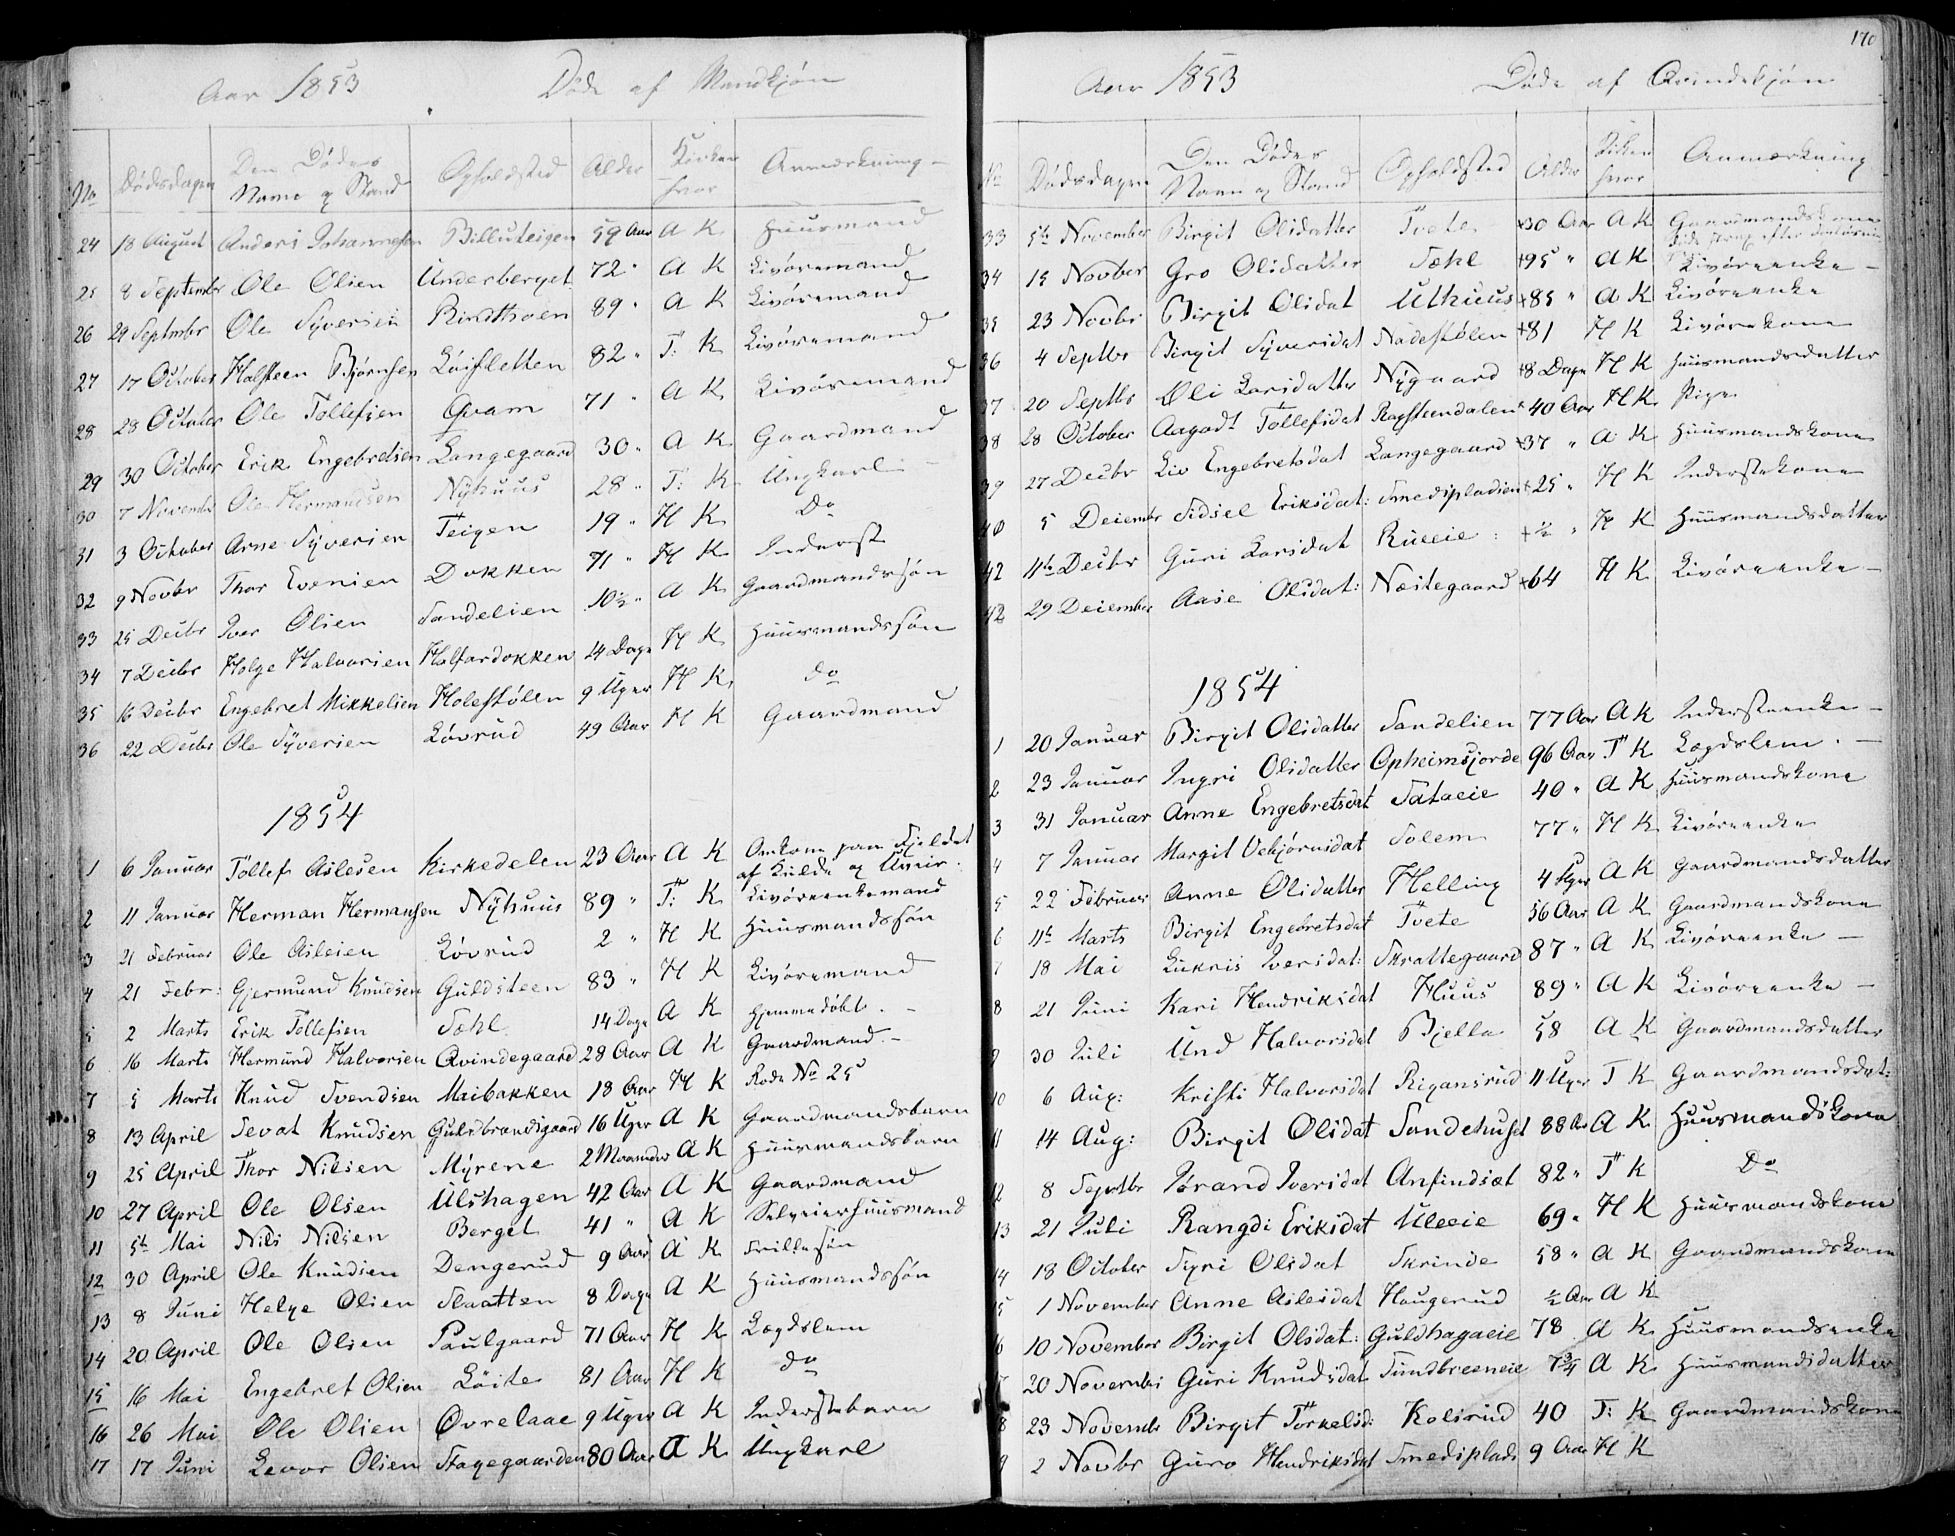 Aar 1853 Døde af Mandkjøn
No Dødsdagen Den Dødes Navn og Stand Opholdsted Alder Kirken hvor Anmærkning
24 18 August Anders Johannesen Billuteigen 59 Aar A K Huusmand
25 8 Septembr Ole Olsen Underberget 72 " A K Livøremand
26 29 Septmbr Ole Syversen Rindthoen 89 " A K Livøremand
27 17 October Halsteen Bjørnsen Løisletten 82 " T: K Livøremand
28 28 October Ole Tollefsen Qvam 71 " A K Livøremand
29 30 October Erik Engebretsen Langegaard 30 " A K Gaardmand
30 7 Novembr Ole Hermandsen Nyhuus 28 " T: K Ungkarl
31 3 October Arne Syversen Teigen 19 " H K Do
32 9 Novbr Thor Evensen Dokken 71 " H K Inderst
33 25 Decbr Iver Olsen Sandelien 10½ " A K Gaardmandssøn
34 7 Decbr Holge Halvorsen Halfardokken 14 Dage H K Huusmandssøn
35 16 Decbr Engebret Mikkelsen Holestølen 9 Uger H K do
36 22 Decbr Ole Syversen Løvrud 49 Aar H K Gaardmand
1854
1 6 Januar Tollef Aslesen Kirkedelen 23 Aar A K Omkom paa Fjeldet
af Kulde og Uveir.
2 11 Januar Herman Hermansen Nyhuus 89 " T: K Livøreenkemand
3 21 Februar Ole Aslesen Løvrud 2 " H K Huusmandssøn
4 21 Febr: Gjermund Knudsen Guldsteen 83 " H K Livøremand
5 2 Marts Erik Tollefsen Sæhl 14 Dage A K Hjemmedøbt.
6 16 Marts Hermund Halvorsen Qvindegaard 28 Aar A K Gaardmand.
7 5 Marts Knud Svendsen Maibakken 18 Aar H K Rode No 25
8 13 April Sevat Knudsen Gulbrandsgaard 16 Uger A K Gaardmandsbarn
9 25 April Thor Nilsen Myrene 2 Maaneder A K Huusmandsbarn
10 27 April Ole Olsen Ulshagen 42 Aar A K Gaardmand
11 5te Mai Nils Nilsen Berget 41 " A K Selveierhuusmand
12 30 April Ole Knudsen Dengerud 9 Aar A K Frillesøn
13 8 Juni Helge Olsen Slaatten 8 Dage A K Huusmandssøn
14 20 April Ole Olsen Paulgaard 71 Aar H K Lægdslem
15 16 Mai Engebret Olsen Løite 81 Aar H K do
16 26 Mai Ole Olsen Øvrelaae 9 Uger A K Inderstebarn
17 17 Juni Levor Olsen Stagegaarden 80 Aar A K Ungkarl
170
Aar 1853 Døde af Qvindekjøn
No Dødsdagen Den Dødes Navn og Stand Opholdsted Alder Kirken hvor Anmærkning
33 5te November Birgit Olsdatter Tvete +30 Aar A K Gaardmandskone
døde strax efter
34 15 Novber Gro Olsdatter Sæhl +95 " A K Livøreenke
35 23 Novbr Birgit Olsdat Uthuus +85 " A K Livøreenke
36 4 Septbr Birgit Syversdat Nadestølen +81 H K Livørekone
37 20 Septbr Øli Larsdatter Nygaard +8 Dage H K Huusmandsdatter
38 28 October Aagodt Tollefsdat Rogsteendalen 40 Aar H K Pige
39 27 Decbr Liv Engebretsdat Langegaard +37 " A K Huusmandskone
40 5 Decembr Sidsel Eriksdat: Smedspladsen +25 " H K Inderstekone
42 11te Decbr Guri Larsdat Rueeie +½ " H K Huusmandsdatter
42 29 December Aase Olsdat: Næstegaard +64 H K Livøreenke
1854
1 20 Januar Birgit Olsdatter Sandelien 77 Aar A K Indersteenke
2 23 Januar Ingri Olsdatter Opheimsjorde 96 Aar T K Lægdslem.
3 31 Januar Anne Engebretsdat Sataeie 40 " A K Huusmandskone
4 7 Januar Margit Vebjørnsdat Solem 77 " H K Livøreenke
5 22 Februar Anne Olsdatter Helling 4 Uger A K Gaardmandsdatter
6 11te Marts Birgit Engebretsdat Tvete 36 Aar A K Gaardmandskone
7 18 Mai Lukris Iversdat: Skrattegaard 87 " A K Livøreenke
8 21 Juni Kari Hendriksdat Huus 89 " A K Livøreenke
9 30 Juli Und Halvorsdat Bjella 58 A K Gaardmandsdatter
10 6 Aug: Kristi Halvorsdat Rigansrud 11 Uger T K Gaardmandsdat:
11 14 Aug: Birgit Olsdat Sandehuset 88 Aar A K Huusmandskone
12 8 Septbr Jørand Iversdat Anfindsæt 82 " T K Do
13 21 Juli Rangdi Eriksdat Uleeie 69 " H K Huusmandskone
14 18 October Sigri Olsdat Skrinde 58 " A K Gaardmandskone
15 1 November Anne Aslesdat Haugerud ½ Aar A K
16 10 November Birgit Olsdat: Guldhagaeie 78 A K Huusmandsenke
17 20 November Guri Knudsdat Sundbreeneie 7¾ A K Huusmandsdatter
18 23 Novembr Birgit Torkelsd: Kolsrud 40 T: K Gaardmandskone
19 2 Novbr Guro Hendriksdat Smedsplads 9 Aar H K